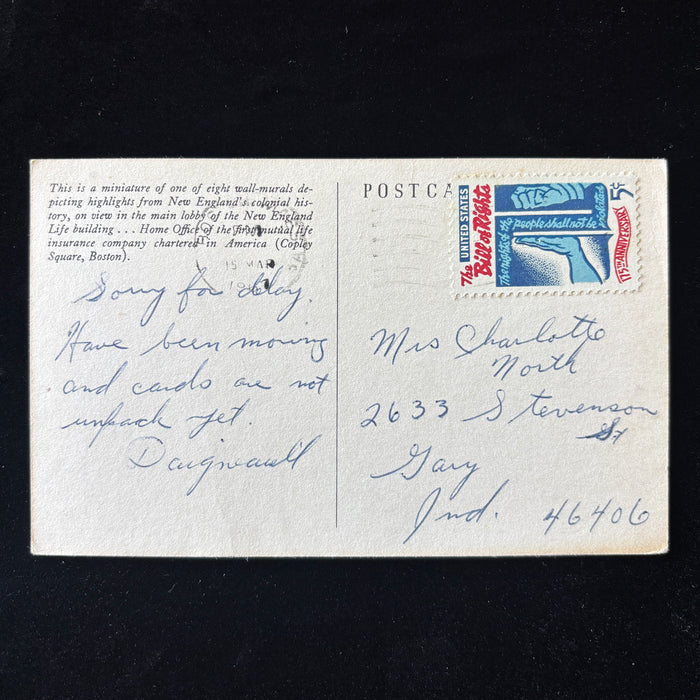 This is a miniature of one of eight wall-murals de-
picting highlights from New England's colonial his-
tory, on view in the main lobby of the New England
Life building . . . Home Office of the first mutual life
insurance company chartered in America (Copley
Square, Boston).
15 MAR
Sorry for delay.
Have been moving
and cards are not
unpack yet.
Daigneault
POSTCA
UNITED STATES
5¢
The
Bill of Rights
The rights of the
people shall not be violated
175TH ANNIVERSARY
Mrs Charlotte
North
2633 Stevenson
St
Gary
Ind. 46406